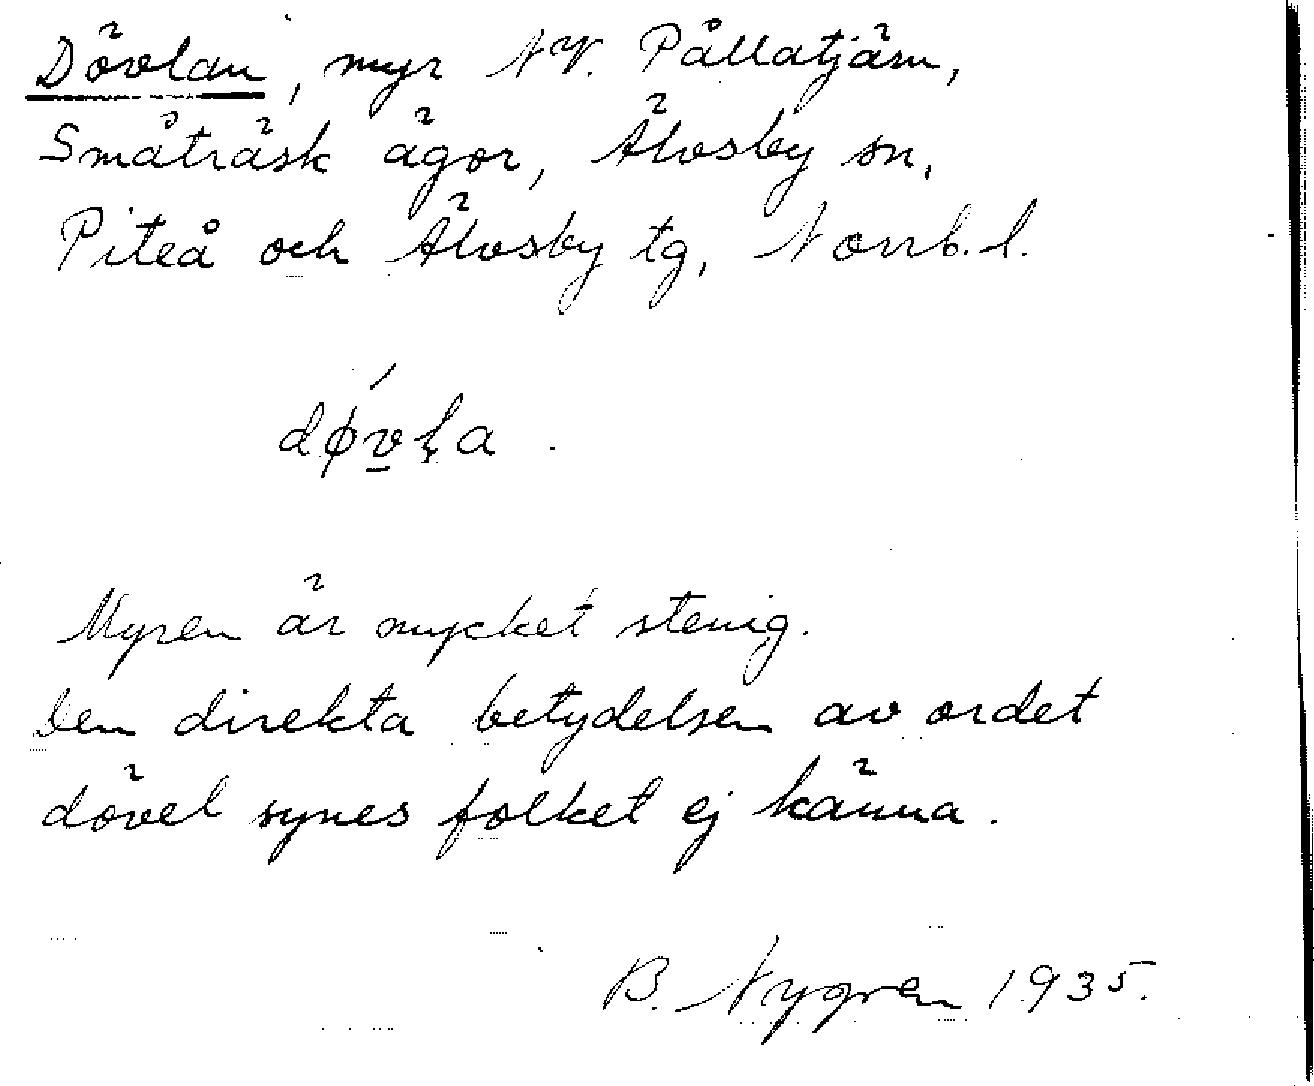 Dövlan, myr NV. Pållatjärn,
Småträsk ägor, Älvsby sn,
Piteå och Älvsby tg, Norrb. l.
dǿv̲ḷa.
Myren är mycket stenig.
Den direkta betydelsen av ordet
dövel synes folket ej känna.
B. Nygren 1935.